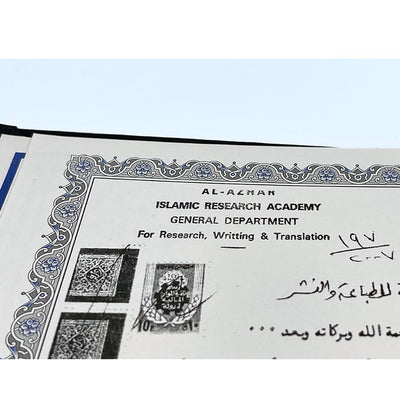 AL-AZHAR
ISLAMIC RESEARCH ACADEMY
GENERAL DEPARTMENT
For Research, Writting & Translation
١٩٧
٢٠٠٧
ة للطباعة والنشر
مة الله وبركاته وبعد ...